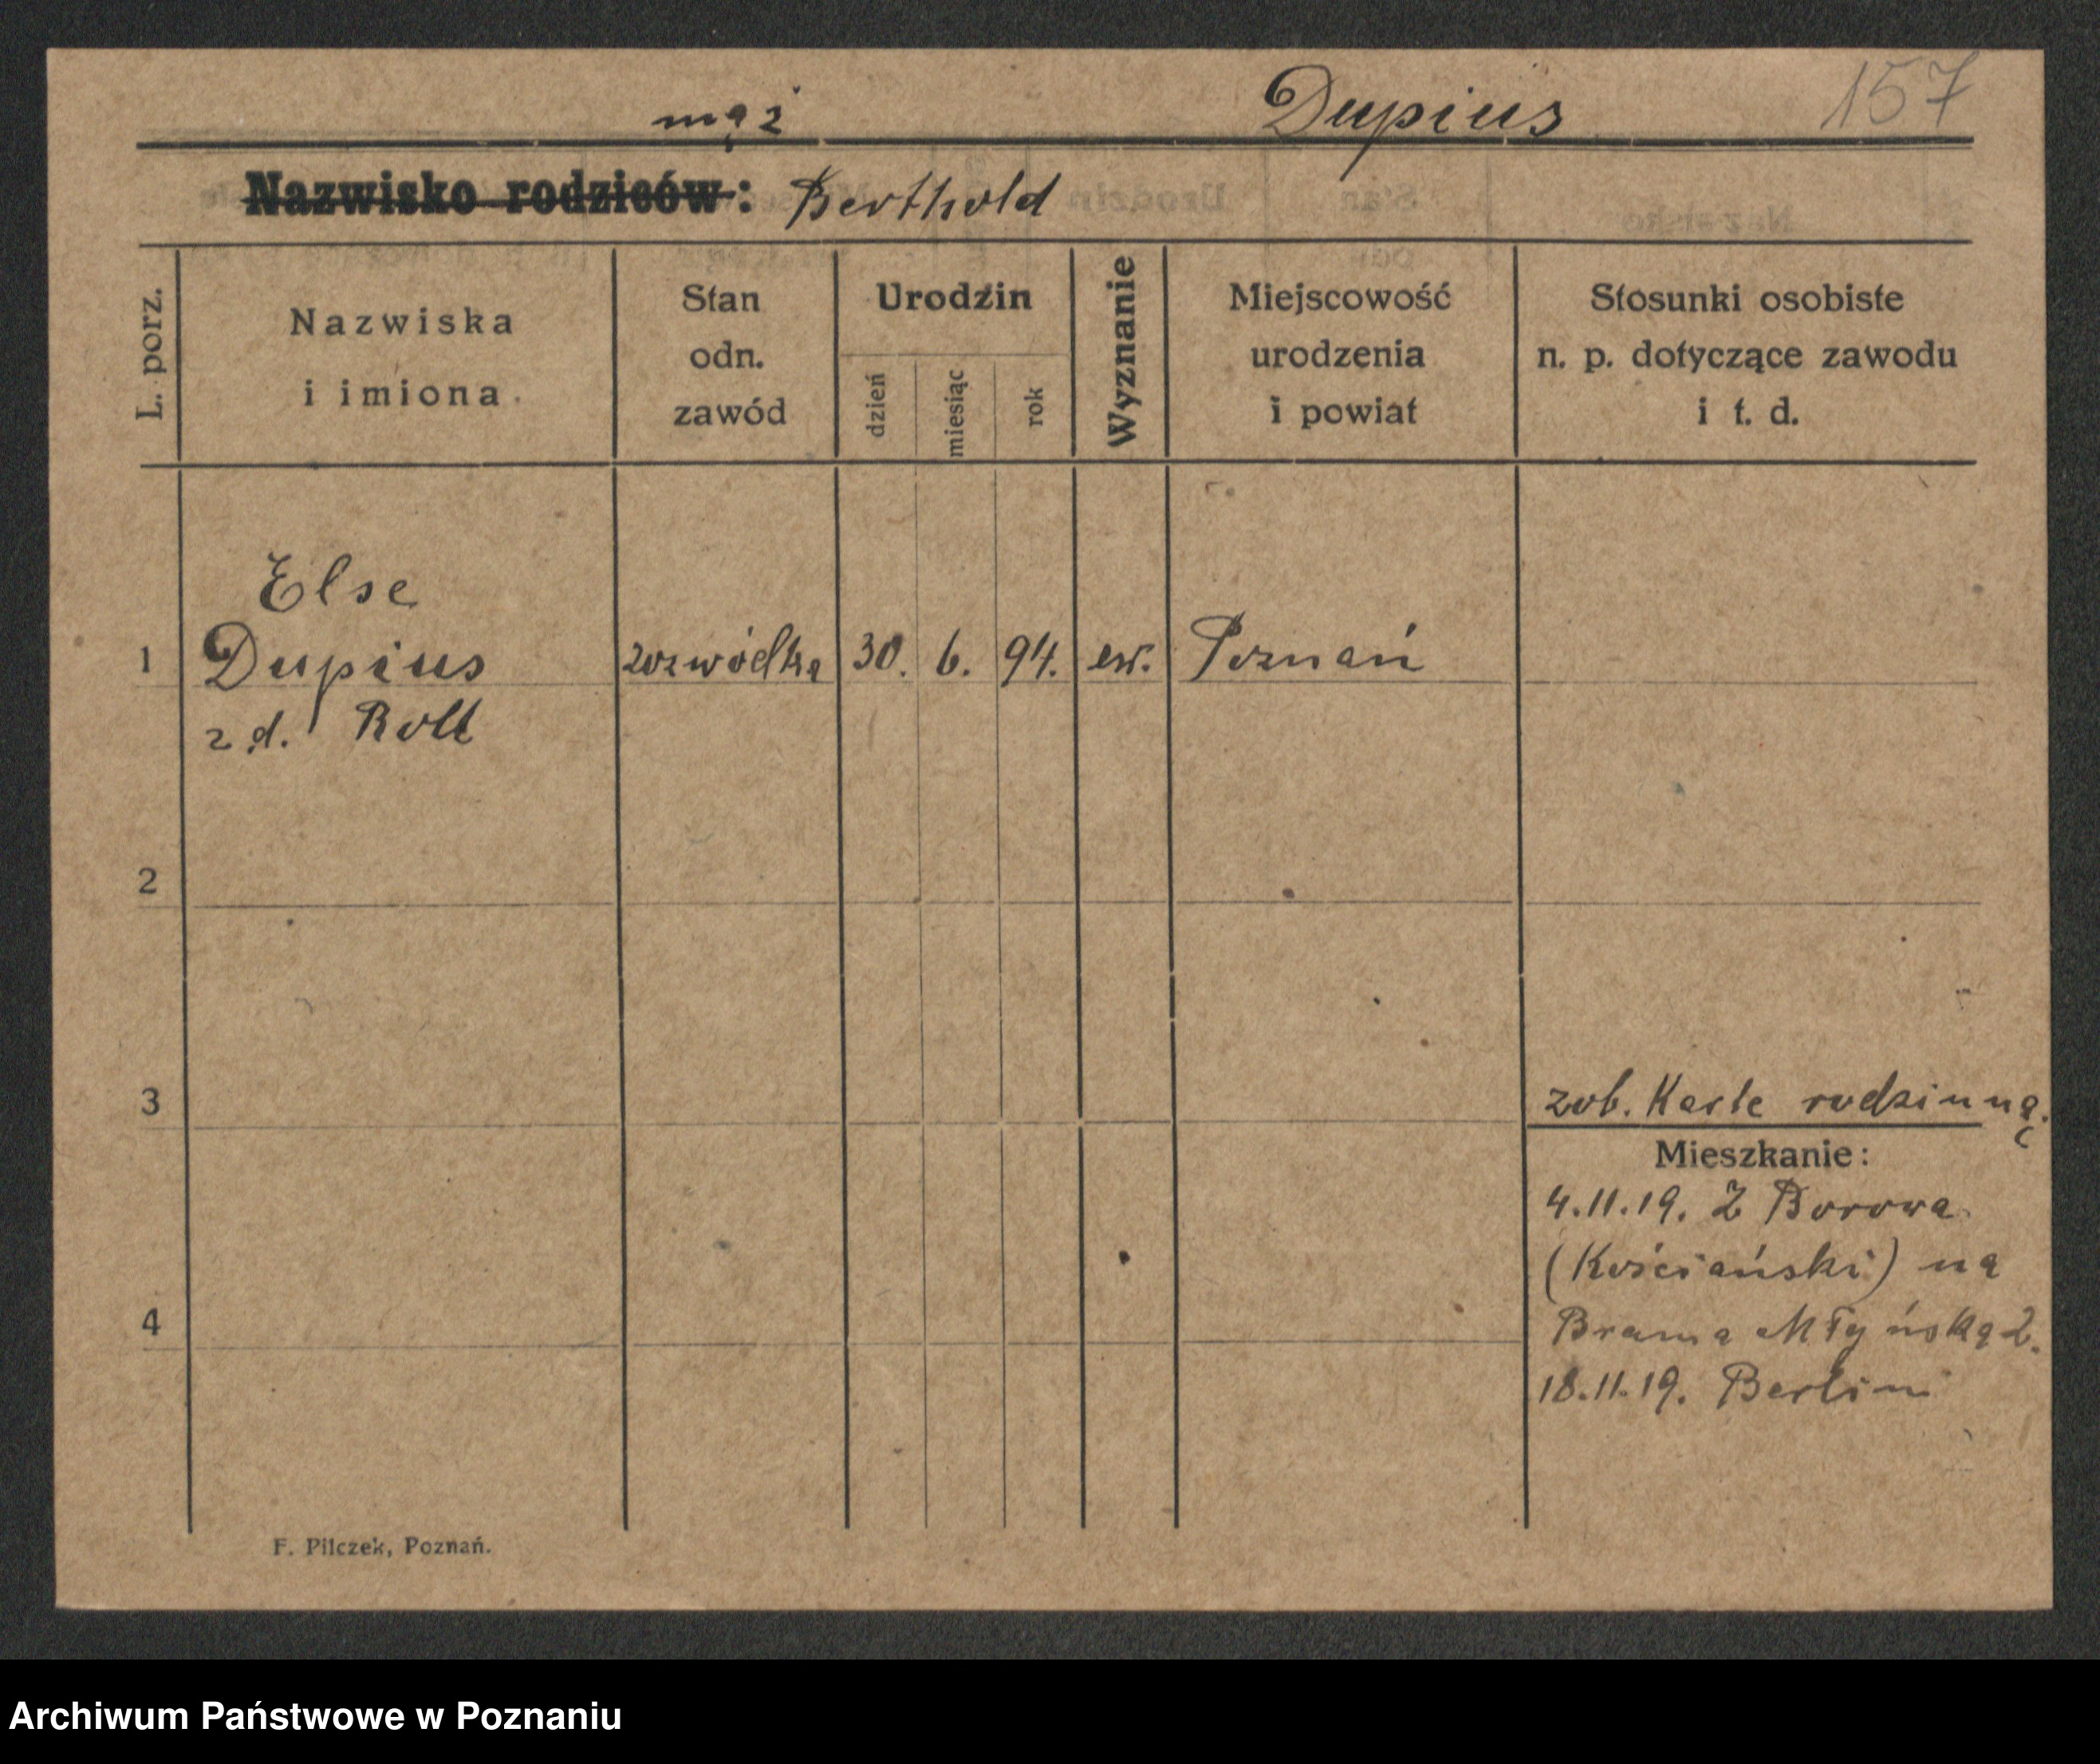 157
mąż Dupius
Nazwisko rodziców: Berthold
L. porz.
Nazwiska
i imiona
Stan
odn.
zawód
Urodzin
dzień
miesiąc
rok
Wyznanie
Miejscowość
urodzenia
i powiat
Stosunki osobiste
n. p. dotyczące zawodu
i t. d.
Else
1 Dupius rozwódka 30. 6. 94. ew. Poznań
z d.
2
3
zob. Karte rodzinną.
Mieszkanie:
4.11.19. Z Borowa
(Kościański) na
4
Brama Młyńska 2.
18.11.19. Berlin
F. Pilczek, Poznań.
Archiwum Państwowe w Poznaniu